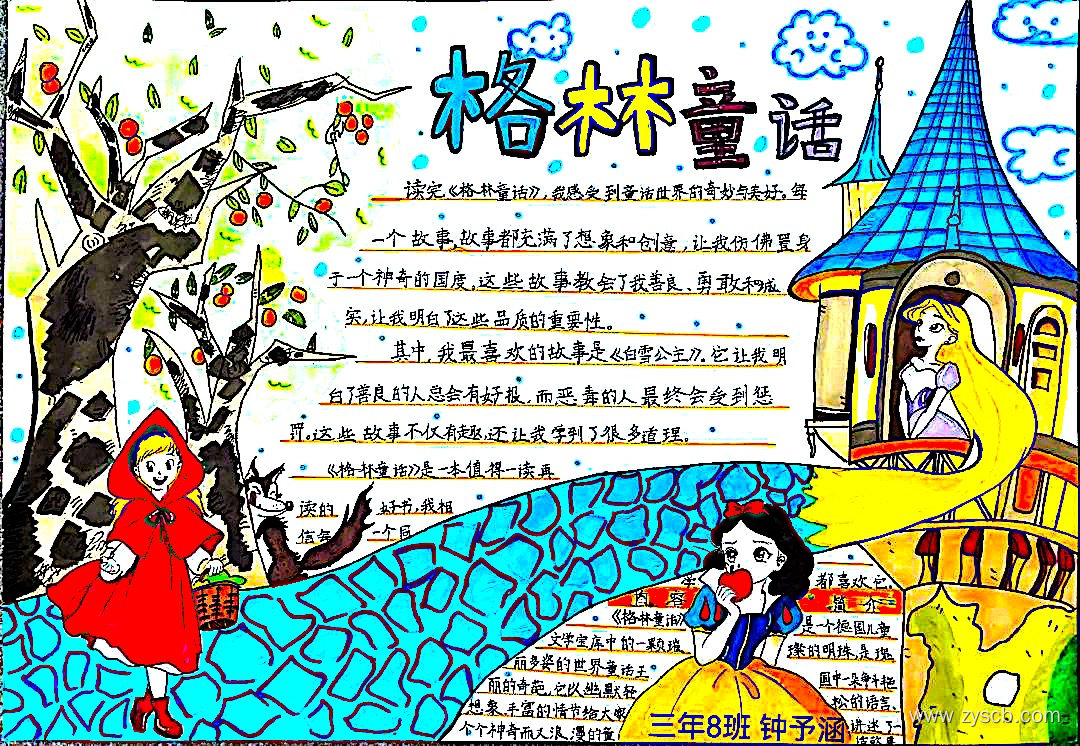 格林童话
读完《格林童话》，我感受到童话世界的奇妙与美好。每
一个故事，故事都充满了想象和创意，让我仿佛置身
于一个神奇的国度。这些故事教会了我善良、勇敢和诚
实，让我明白了这些品质的重要性。
其中，我最喜欢的故事是《白雪公主》。它让我明
白了善良的人总会有好报，而恶毒的人最终会受到惩
罚。这些故事不仅有趣，还让我学到了很多道理。
《格林童话》是一本值得一读再
读的 好书，我相
信每 一个
都喜欢它。
内容 简介
《格林童话》 是一个德国儿童
文学宝库中的一颗璀 璨的明珠，是瑰
丽多姿的世界童话王 国中一朵
丽的奇葩。它以幽默轻 松的语言，
想象丰富的情节给大家 讲述了一
个个神奇而又浪漫的童
三年8班 钟予涵
www.zyscb.com